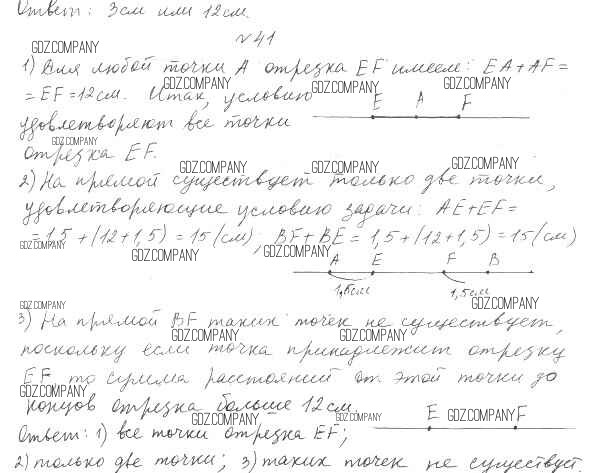 Ответ: 3 см или 12 см.
№ 41
GDZ.COMPANY
1) Для любой точки A отрезка EF имеем: EA + AF =
GDZ.COMPANY GDZ.COMPANY GDZ.COMPANY
= EF = 12 см. Итак, условию
E A F
удовлетворяют все точки
GDZ.COMPANY
отрезка EF.
GDZ.COMPANY GDZ.COMPANY GDZ.COMPANY
2) На прямой существует только две точки,
удовлетворяющие условию задачи: AE + EF =
= 1,5 + (12 + 1,5) = 15 (см), BF + BE = 1,5 + (12 + 1,5) = 15 (см)
GDZ.COMPANY GDZ.COMPANY GDZ.COMPANY
A E F B
1,5 см 1,5 см
GDZ.COMPANY GDZ.COMPANY
3) На прямой BF таких точек не существует,
GDZ.COMPANY GDZ.COMPANY
поскольку если точка принадлежит отрезку
EF то сумма расстояний от этой точки до
GDZ.COMPANY
концов отрезка больше 12 см
GDZ.COMPANY GDZ.COMPANY E GDZ.COMPANY F
Ответ: 1) все точки отрезка EF;
2) только две точки; 3) таких точек не существует.